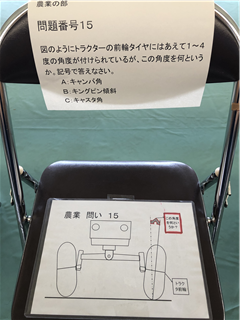 農業の部
問題番号15
図のようにトラクターの前輪タイヤにはあえて1～4
度の角度が付けられているが、この角度を何という
か。記号で答えなさい。
A:キャンバ角
B:キングピン傾斜
C:キャスタ角
農業 問い 15
この角度
を何とい
うか?
トラクタ
前輪